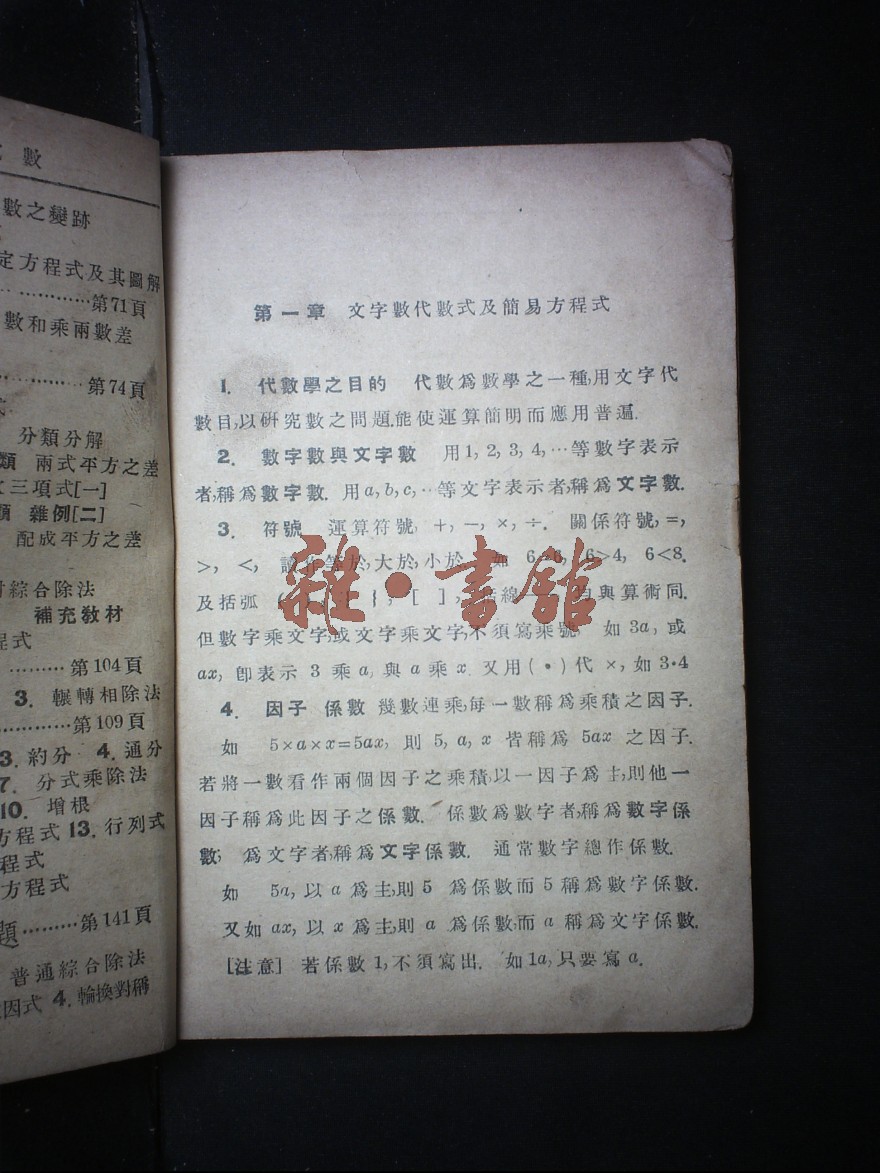 數
數之變跡
定方程式及其圖解
……………第71頁
數和乘兩數差
……………第74頁
分類分解
類 兩式平方之差
三項式[一]
類 雜例[二]
配成平方之差
綜合除法
補充教材
程式
………第104頁
3. 輾轉相除法
…………第109頁
3. 約分 4. 通分
7. 分式乘除法
10. 增根
方程式 13. 行列式
程式
方程式
題………第141頁
普通綜合除法
因式 4. 輪換對稱
第一章 文字數代數式及簡易方程式
1. 代數學之目的 代數爲數學之一種,用文字代
數目,以研究數之問題,能使運算簡明而應用普遍.
2. 數字數與文字數 用1, 2, 3, 4, …等數字表示
者,稱爲數字數. 用a, b, c, …等文字表示者,稱爲文字數.
3. 符號 運算符號, +, −, ×, ÷. 關係符號, =,
>, <, 讀作等於,大於,小於 如 6>4, 6<8.
及括弧 [ ], 括線 均與算術同.
但數字乘文字,或文字乘文字,不須寫乘號 如 3a, 或
ax, 卽表示 3 乘 a, 與 a 乘 x. 又用 (•) 代 ×, 如 3•4
4. 因子 係數 幾數連乘,每一數稱爲乘積之因子.
如 5×a×x=5ax, 則 5, a, x 皆稱爲 5ax 之因子.
若將一數看作兩個因子之乘積,以一因子爲主,則他一
因子稱爲此因子之係數. 係數爲數字者,稱爲數字係
數; 爲文字者,稱爲文字係數. 通常數字總作係數.
如 5a, 以 a 爲主,則 5 爲係數而 5 稱爲數字係數.
又如 ax, 以 x 爲主,則 a 爲係數,而 a 稱爲文字係數.
[注意] 若係數 1, 不須寫出. 如 1a, 只要寫 a.
雜•書館